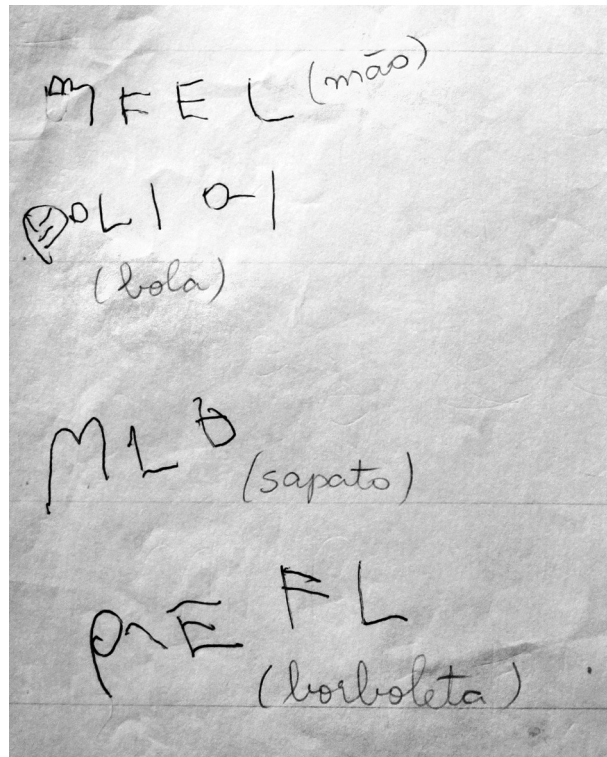 MFEL (mão)
OLI
(bola)
MLO (sapato)
PNE FL
(borboleta)